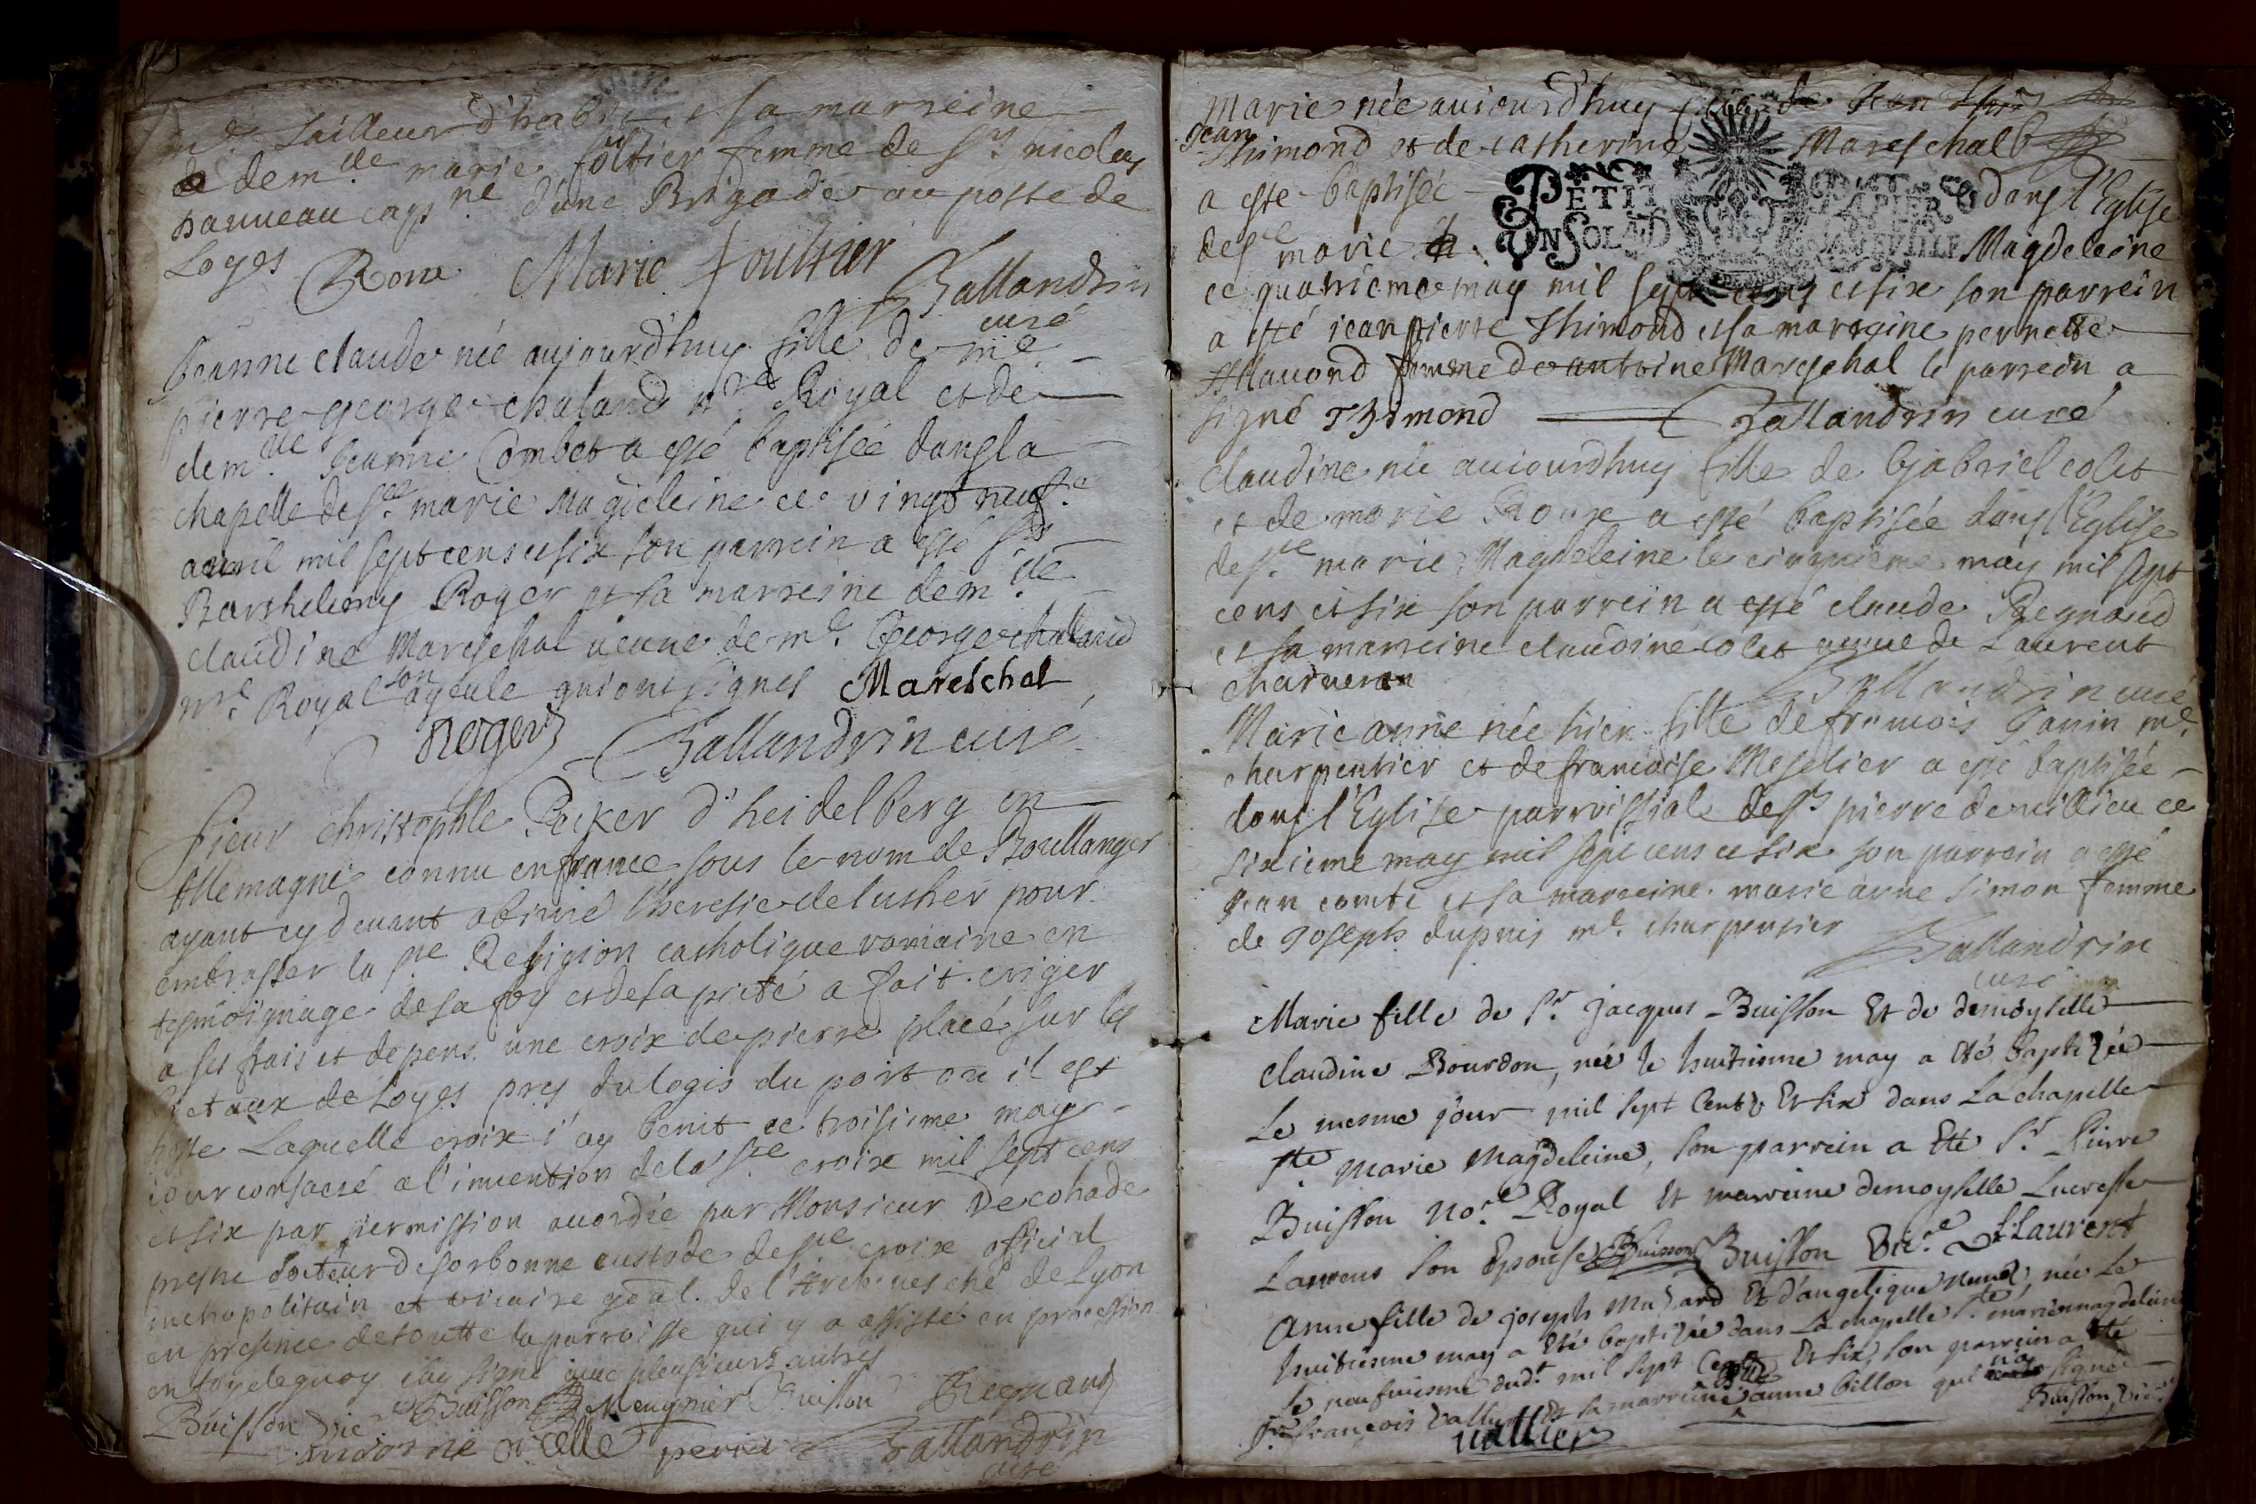 md tailleur d'habits et sa marreine
demlle marie foltier femme de Sr nicolas
panneau cappne d'une Brigade au poste de
Loyes
Marie foultier
Ballandrin
curé
Jeanne claude née aujourd'huy fille de me
pierre george chaland nre Royal et de
demlle Jeanne Combet a esté baptisée dans la
chapelle de Ste marie Magdeleine ce vingt neufe
avril mil sept cens et six son parrein a esté Sr
Barthelemy Roger et sa marreine demlle
claudine Mareschal veuve de me George chaland
nre Royal son ayeule qui ont signés Mareschal
Roger Ballandrin curé
Sieur christophle Beker d'heidelberg en
Allemagne connu en france sous le nom de Boullanger
ayant cy devant abiuré l'heresie de luther pour
embrasser la ste Religion catholique romaine en
tesmoignage de sa foy et de sa pieté a fait eriger
a ses frais et depens une croix de pierre placé sur les
de Loyes pres du logis du port ou il est
hoste Laquelle croix i'ay benit ce troisieme may
iour consacré a l'inuention de la Ste croix mil sept cens
et six par permission accordée par Monsieur De cohade
prestre docteur de sorbonne custode de Ste croix official
metropolitain et vicaire gnal de l'Archevesché de Lyon
en presence de toutte la parroisse qui y a assisté en procession
en foy de quoy i'ay signé avec plusieurs autres
Buisson vic Buisson Meugnier Buisson Regnaud
perra Ballandrin
curé
Marie née auiourd'huy fille de Jean
Jean
Thimond et de catherine Mareschal
a esté baptisée dans l'Eglise
PETIT PAPIER
UN SOL
de Ste marie Magdeleine
ce quatrieme may mil sept cens et six son parrein
a esté jean pierre Thimond et sa marreine pernette
Allauond femme de antoine Mareschal le parrein a
signé Thimond Ballandrin curé
Claudine née auiourd'huy fille de Gabriel colet
et de marie Roux a esté baptisée dans l'Eglise
de Ste marie Magdeleine le cinquieme may mil sept
cens et six son parrein a esté claude Regnaud
et sa marreine claudine Colet veuue de Laurent
charueron
Ballandrin curé
Marie anne née hier fille de francois Janin me
charpentier et de francoise Meselier a esté baptisée
dans l'Eglise parroissiale de St pierre de millieu ce
sixieme may mil sept cens et six son parrein a esté
Jean comte et sa marreine marie anne simon femme
de Joseph dupuis me charpentier
Ballandrin
curé
Marie fille de Sr Jacques Buisson Et de demoyselle
claudine Bourdon, née le huitienne may a Eté baptizée
Le mesme jour mil sept Cents Et six dans La chapelle
ste marie Magdeleine, son parrein a Eté Sr Pierre
Buisson nore Royal Et marreine demoyselle Lucresse
Laurens son Epouse Buisson Buisson Vice St Laurent
Anne fille de joseph Muzard Et d'angelique née Le
huitienne may a Eté baptizée dans La chapelle Ste marie magdeleine
le neufuiesme dudt mil sept Cents Et six, son parrein a Eté
Sr francois Vallier Et sa marreine anne billon qui n'a signé
vallier Buisson, Vice